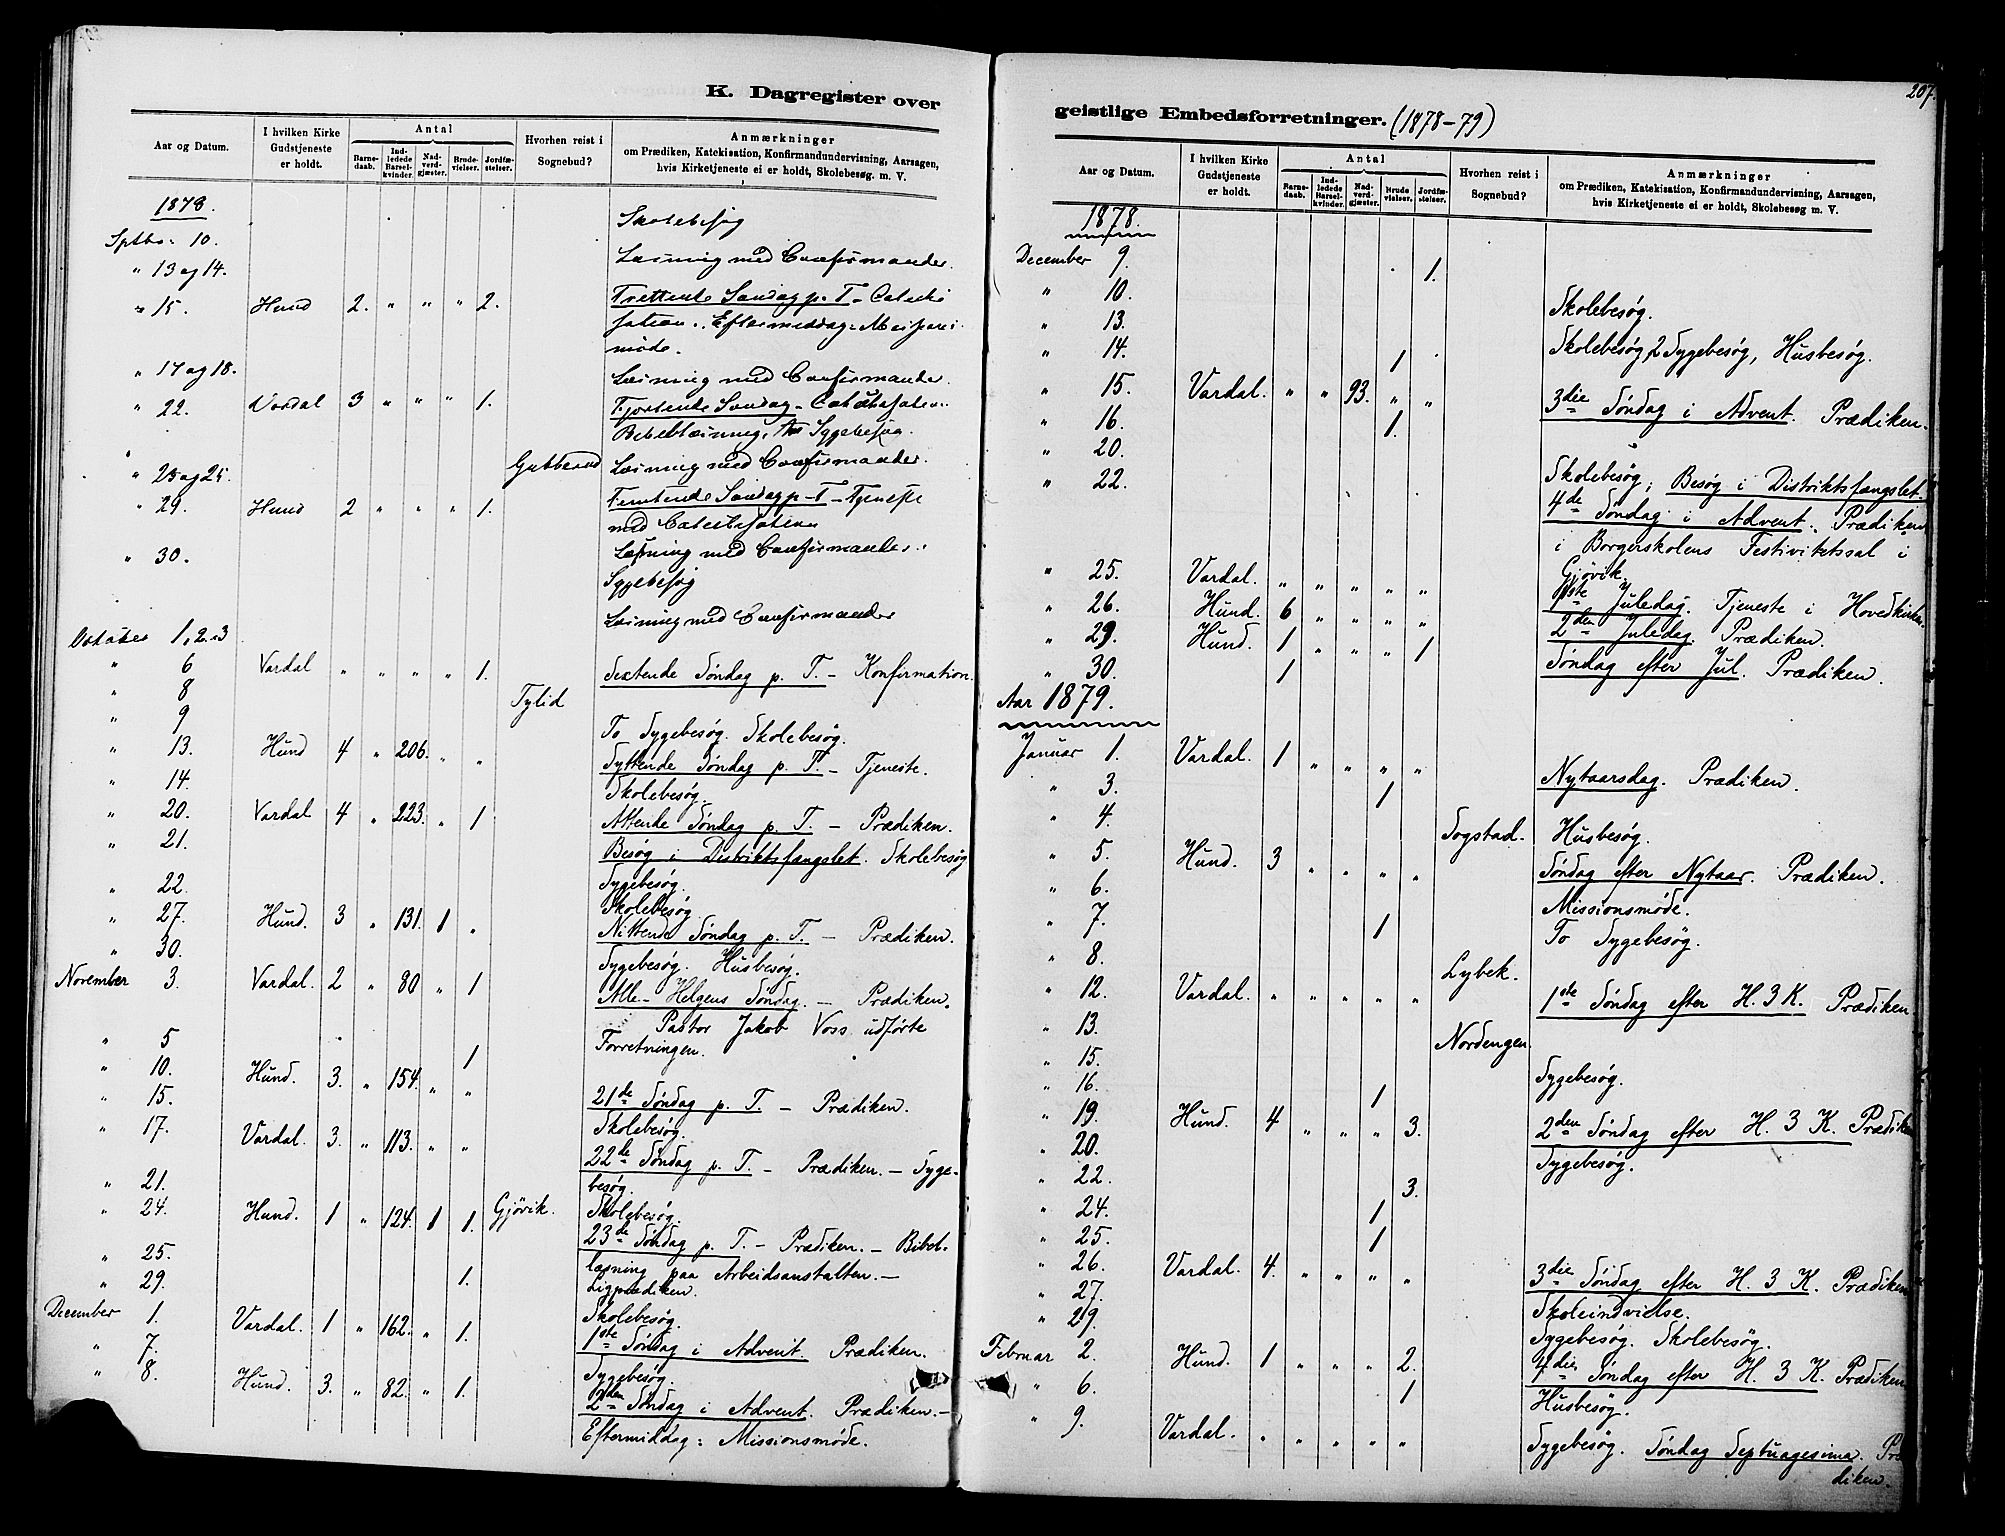 K. Dagregister over
Aar og Datum. I hvilken Kirke Gudstjeneste er holdt. Antal Barne-daab. Ind-ledede Barsel-kvinder. Nad-verd-gjæster. Brude-vielser. Jordfæ-stelser. Hvorhen reist i Sognebud? Anmærkninger om Prædiken, Katekisation, Konfirmandundervisning, Aarsagen, hvis Kirketjeneste ei er holdt, Skolebesøg m. V.
1878.
Sptbr: 10. Skolebesøg
" 13 og 14. Læsning med Confirmander.
" 15. Hund 2. " " " 2. Trettende Søndag p. T – Cateki
sation. Eftermiddag: Missions
møde.
" 17 og 18. Læsning med Confirmander.
" 22. Vardal 3 " " " 1. Fjortende Søndag –
Bibellæsning. Sygebesøg.
Læsning med Confirmander.
" 29. Hund 2 " " " 1. Femtende Søndag p. T – Tjeneste
med Catechisation
" 30. Læsning med Confirmander.
Sygebesøg
October 1, 2 & 3 Læsning med Confirmander
" 6 Vardal " " " " 1. Sextende Søndag p. T. – Konfirmation.
" 8 Tylid
" 9 To Sygebesøg. Skolebesøg.
" 13. Hund 4 " 206. " " Syttende Søndag p. T. – Tjeneste.
" 14. Skolebesøg.
" 20. Vardal 4 " 223. " 1 Attende Søndag p. T. – Prædiken.
" 21. Besøg i Distriktsfængslet. Skolebesøg
Sygebesøg.
" 22. Skolebesøg.
" 27. Hund. 3 " 131. 1 " Nittende Søndag p. T. – Prædiken.
" 30. Sygebesøg. Husbesøg.
November 3. Vardal. 2 " 80 " 1 Alle-Helgens Søndag. – Prædiken.
Pastor Jakob Voss udførte
Forretningen.
" 5 1
" 10. Hund. 3. " 154. " " 21de Søndag p. T. – Prædiken.
" 15. Skolebesøg.
" 17. Vardal. 3. " 113. " " 22de Søndag p. T. – Prædiken. – Syge-
besøg.
" 21. Skolebesøg.
" 24. Hund. 1 " 124. 1 1. Gjøvik. 23de Søndag p. T. – Prædiken. – Bibel-
læsning paa Arbeidsanstalten. –
" 25. 1. Ligprædiken.
" 29. Skolebesøg.
December 1. Vardal. 1 " 162. " 1. 1ste Søndag i Advent. Prædiken.
" 7. Sygebesøg.
" 8. Hund. 3. " 82. " 1. 2den Søndag i Advent. Prædiken. –
Eftermiddag: Missionsmøde.
207.
geistlige Embedsforretninger. (1878–79)
Aar og Datum. I hvilken Kirke Gudstjeneste er holdt. Antal Barne-daab. Ind-ledede Barsel-kvinder. Nad-verd-gjæster. Brude vielser. Jordfæ-stelser. Hvorhen reist i Sognebud? Anmærkninger om Prædiken, Katekisation, Konfirmandundervisning, Aarsagen, hvis Kirketjeneste ei er holdt, Skolebesøg m. V.
1878.
December 9. 1.
" 10. Skolebesøg.
" 13. Skolebesøg, 2 Sygebesøg, Husbesøg.
" 14. 1
" 15. Vardal. " " 93. " " 3die Søndag i Advent. Prædiken.
" 16. 1.
" 20. Skolebesøg; Besøg i Distriktsfængslet.
" 22. 4de Søndag i Advent. Prædiken
i Borgerskolens Festivitetssal i
Gjøvik.
" 25. Vardal. " " " " " 1ste Juledag. Tjeneste i Hovedkirken.
" 26. Hund. 6 " " " " 2den Juledag. Prædiken.
" 29. Hund. 1 " " " 1 Søndag efter Jul. Prædiken.
" 30. 1
Aar 1879.
Januar 1. Vardal. 1 " " " " Nytaarsdag. Prædiken.
" 3. 1
" 4. Sogstad. Husbesøg.
" 5. Hund. 3 " " " " Søndag efter Nytaar. Prædiken.
" 6. Missionsmøde.
" 7. 1 To Sygebesøg.
" 8. Lybek.
" 12. Vardal. " " " " " 1ste Søndag efter H. 3 K. Prædiken
" 13. Nordengen.
" 15. Sygebesøg.
" 16. 1
" 19. Hund. 4 " " " 3. 2den Søndag efter H. 3 K. Prædiken
" 20. Sygebesøg.
" 22. 3.
" 24. 1
" 25. 1
" 26. Vardal. 4. " " " " 3die Søndag efter H. 3 K. Prædiken
" 27. Skoleindvielse.
" 29. Sygebesøg. Skolebesøg.
Februar 2. Hund. 1 " " " 2. 4die Søndag efter H. 3 K. Prædiken
" 6. 1 Husbesøg.
" 9. Vardal. " " " " " Sygebesøg. Søndag Septuagesima. Præ
diken.